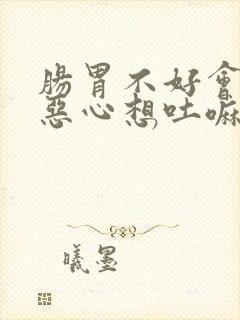 腸胃不好會
惡心想吐嘛
曦墨